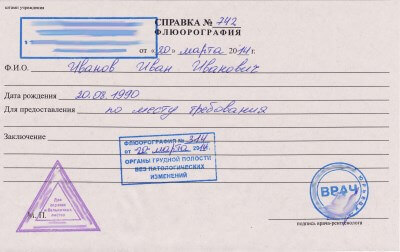 штамп учреждения
СПРАВКА № 242
ФЛЮОРОГРАФИЯ
от «20» марта 2014г.
Ф.И.О. Иванов Иван Иванович
Дата рождения 20.08.1990
Для предоставления по месту требования
Заключение
ФЛЮОРОГРАФИЯ № 314
от 20 марта 2014
ОРГАНЫ ГРУДНОЙ ПОЛОСТИ
БЕЗ ПАТОЛОГИЧЕСКИХ
ИЗМЕНЕНИЙ
Для
справок
и больничных
листов
М.П.
ВРАЧ
подпись врача-рентгенолога